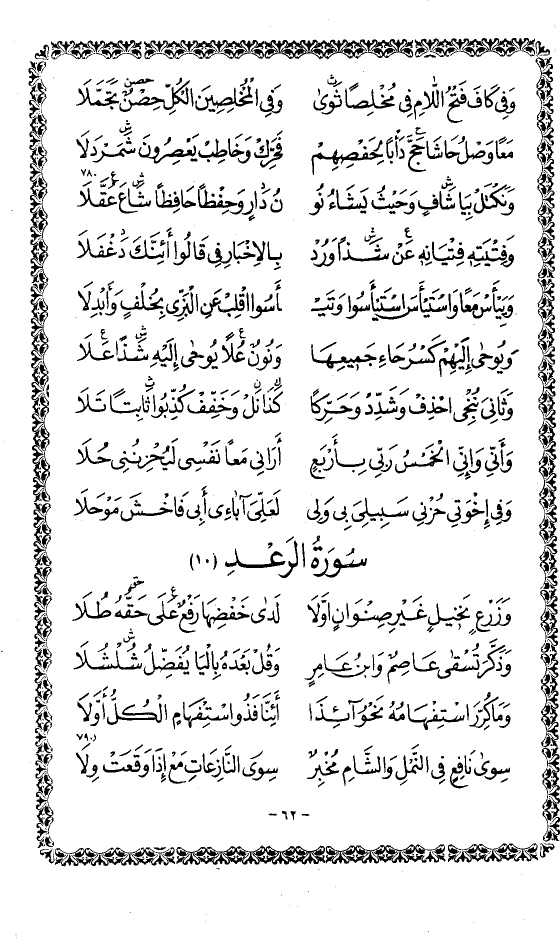 وَفِي كَافَ فَتْحُ اللَّامِ فِي مُخْلِصًا ثَوَى وَفِي الْمُخْلِصِينَ الْكُلِّ حِصْنٌ تَجَمَّلَا
مَعًا وَصْلُ حَاشَا حَجَّ دَأْبًا لِحَفْصِهِمْ فَحَرِّكْ وَخَاطِبْ يَعْصِرُونَ شَمَرْدَلَا
وَنَكْتَلْ بِيَا شَافٍ وَحَيْثُ يَشَاءُ نُو نُ دَارٍ وَحِفْظًا حَافِظًا شَاعَ عُقَّلَا ٧٨٠
وَفِتْيَتِهِ فِتْيَانِهِ عَنْ شَذًا وَرُدْ بِالِاخْبَارِ فِي قَالُوا أَئِنَّكَ دَغْفَلَا
وَيَيْأَسْ مَعًا وَاسْتَيْأَسَ اسْتَيْأَسُوا وَتَيْـ أَسُوا اقْلِبْ عَنِ الْبَزِّي بِخُلْفٍ وَأَبْدِلَا
وَيُوحَى إِلَيْهِمْ كَسْرُ حَاءِ جَمِيعِهَا وَنُونٌ عُلًا يُوحَى إِلَيْهِ شَذًا عَلَا
وَثَانِيَ نُنْجِي احْذِفْ وَشَدِّدْ وَحَرِّكًا كَذَا نَلْ وَخَفِّفْ كُذِّبُوا ثَابِتًا تَلَا
وَأَنِّي وَإِنِّي الْخَمْسُ رَبِّي بِأَرْبَعٍ أَرَانِي مَعًا نَفْسِي لَيُحْزِنُنِي حُلَا
وَفِي إِخْوَتِي حُزْنِي سَبِيلِيَ بِي وَلِي لَعَلِّي آبَاءِي أَبِي فَاخْشَ مَوْحَلَا
سُورَةُ الرَّعْدِ (١٠)
وَزَرْعٌ نَخِيلٌ غَيْرُ صِنْوَانٍ أَوَّلَا لَدَى خَفْضِهَا رَفْعٌ عَلَى حَقُّهُ طُلَا
وَذَكَّرَ تُسْقَى عَاصِمٌ وَابْنُ عَامِرٍ وَقُلْ بَعْدَهُ بِالْيَا يُفَضِّلُ شُلْشُلَا
وَمَا كُرِّرَ اسْتِفْهَامُهُ نَحْوُ آئِذَا أَئِنَّا فَذُو اسْتِفْهَامٍ الْكُلُّ أَوَّلَا
سِوَى نَافِعٍ فِي النَّمْلِ وَالشَّامِ مُخْبِرٌ سِوَى النَّازِعَاتِ مَعْ إِذَا وَقَعَتْ وِلَا ٧٩٠
- ٦٢ -